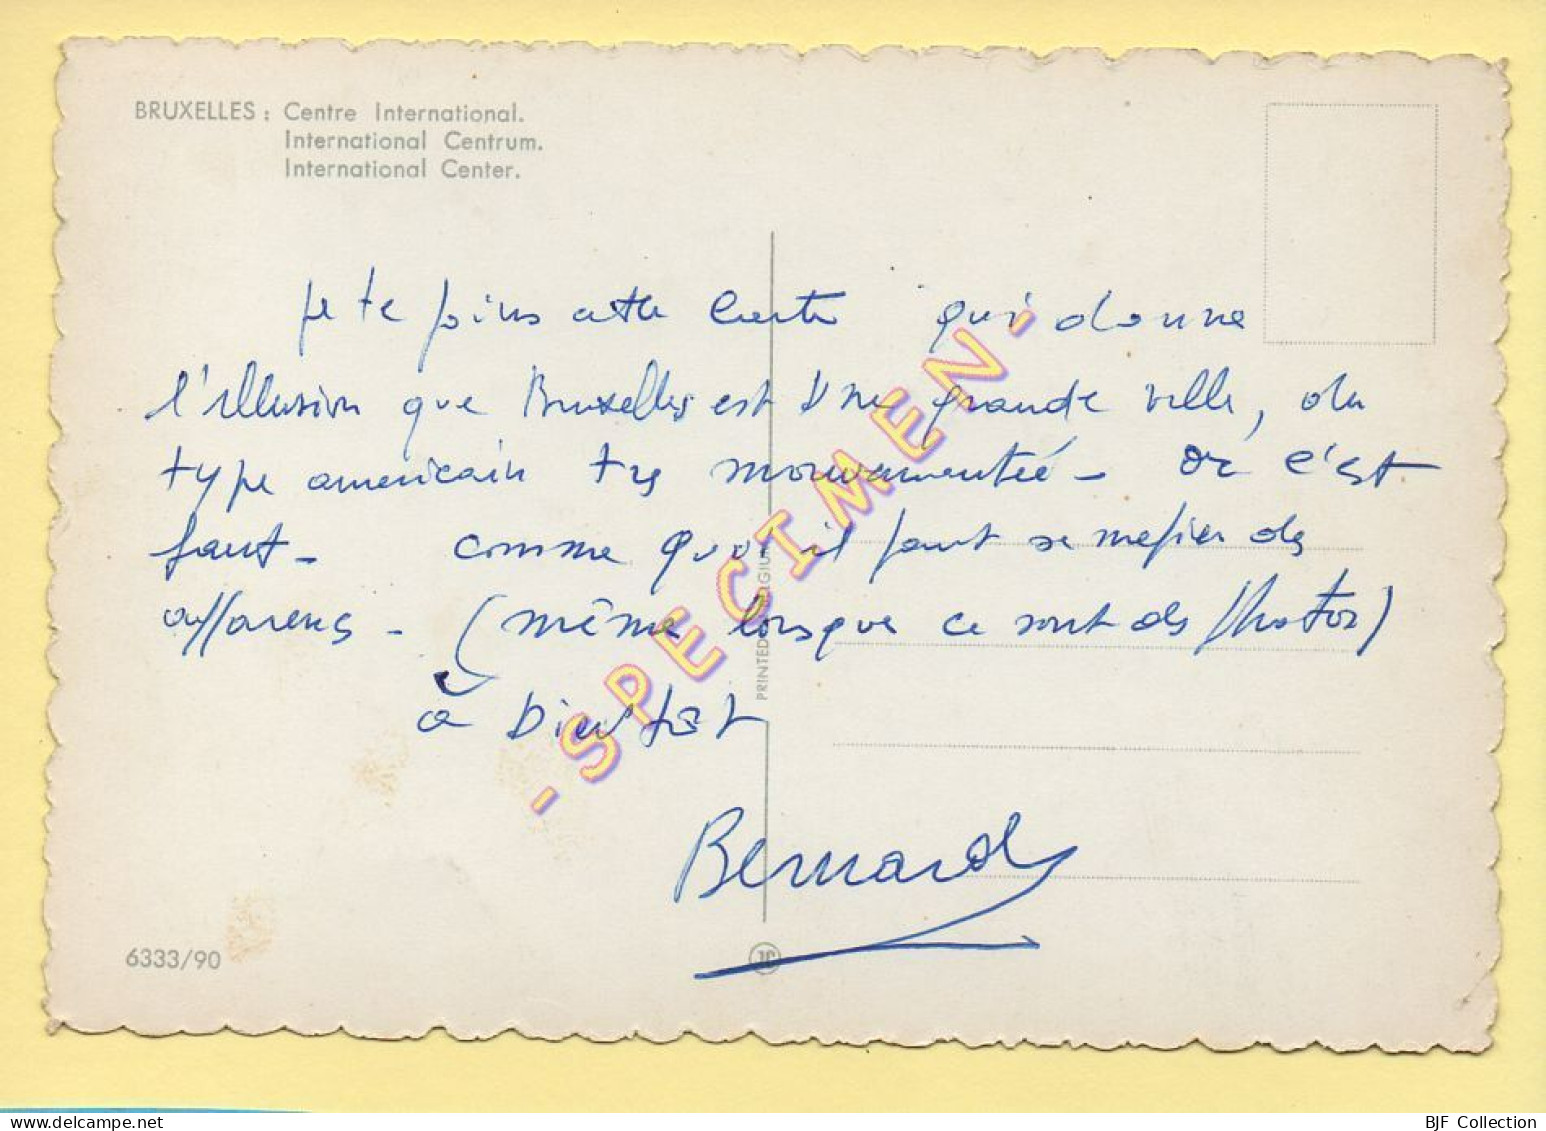 BRUXELLES : Centre International.
International Centrum.
International Center.
je te joins cette carte qui donne
l'illusion que Bruxelles est une grande ville, du
type americain très mouvamentée - or c'est
faux - comme quoi il faut se mefier des
apparences - (même lorsque ce sont des photos)
à bientôt
Bernard
PRINTED BELGIUM
- SPECIMEN -
6333/90
JC
BJF Collection